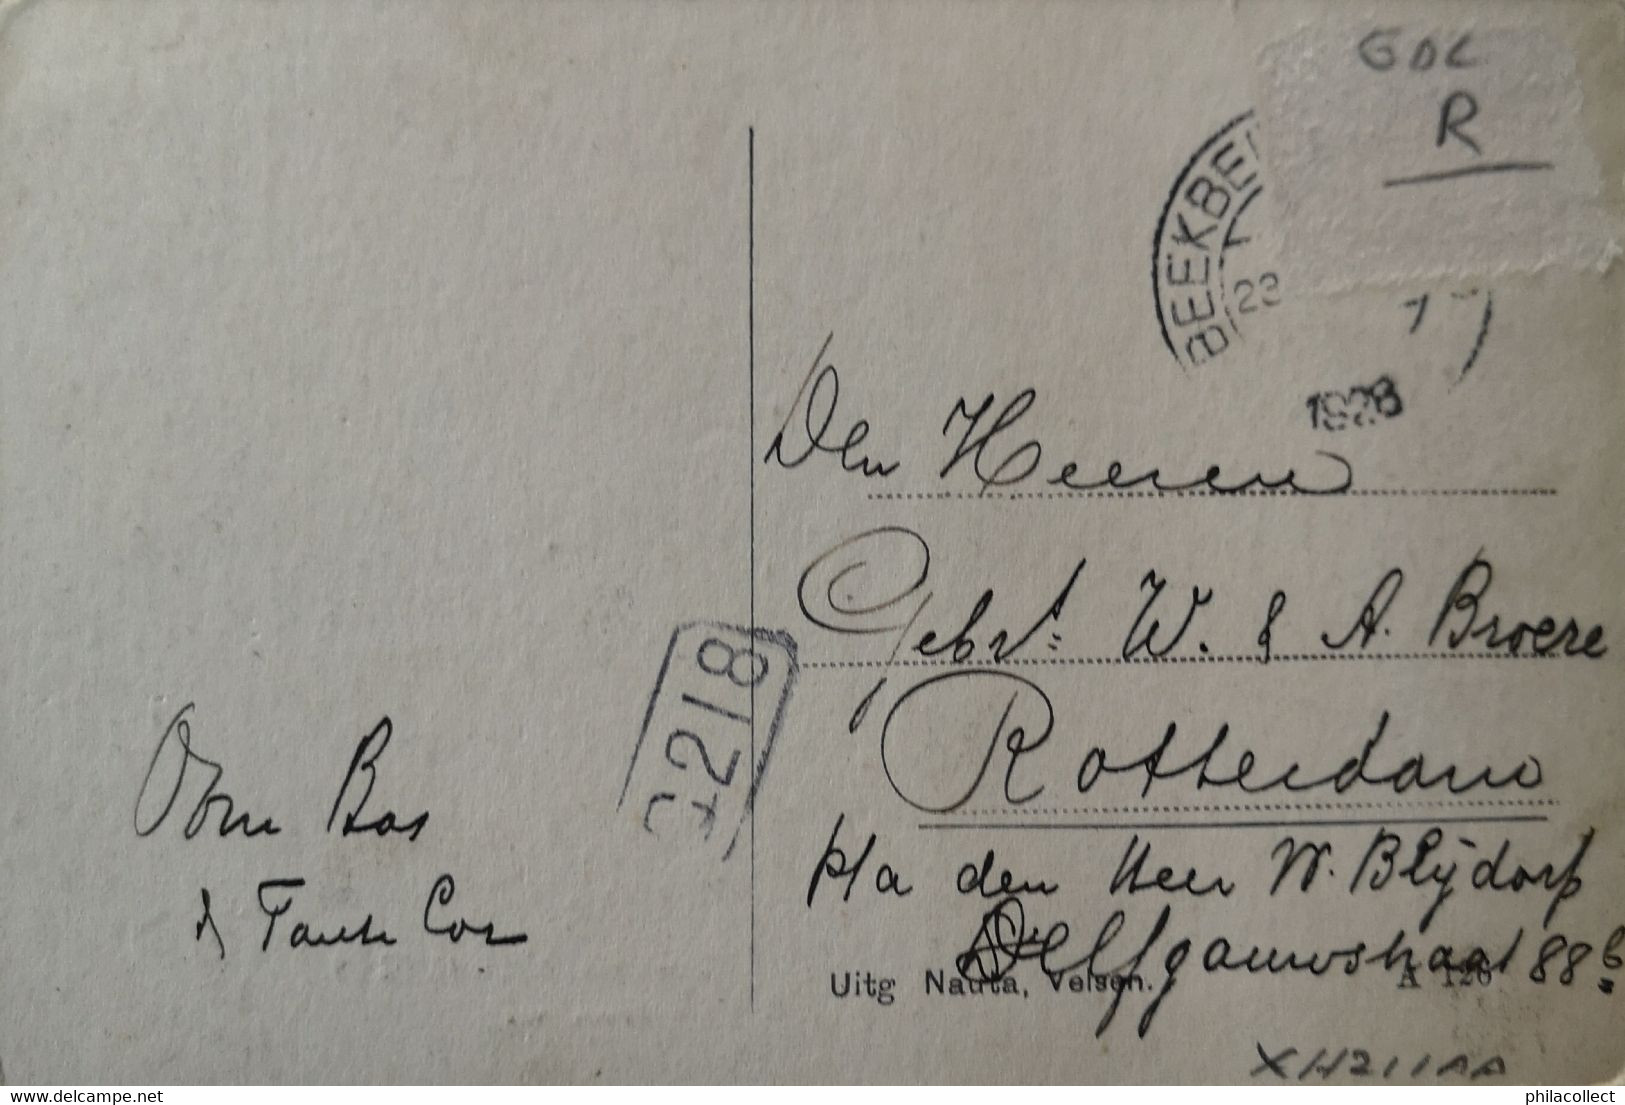 GDL
R
BEEKBE
23
1
1928
Den Heeren
Gebrs. W. & A. Broere
Rotterdam
p/a den Heer W. Blijdorp
Delfgauwstraat 88b
Uitg Nauta, Velsen. A 126
Oom Bas
& Tante Cor
2218
XH211AA
delcampe.net
philacollect